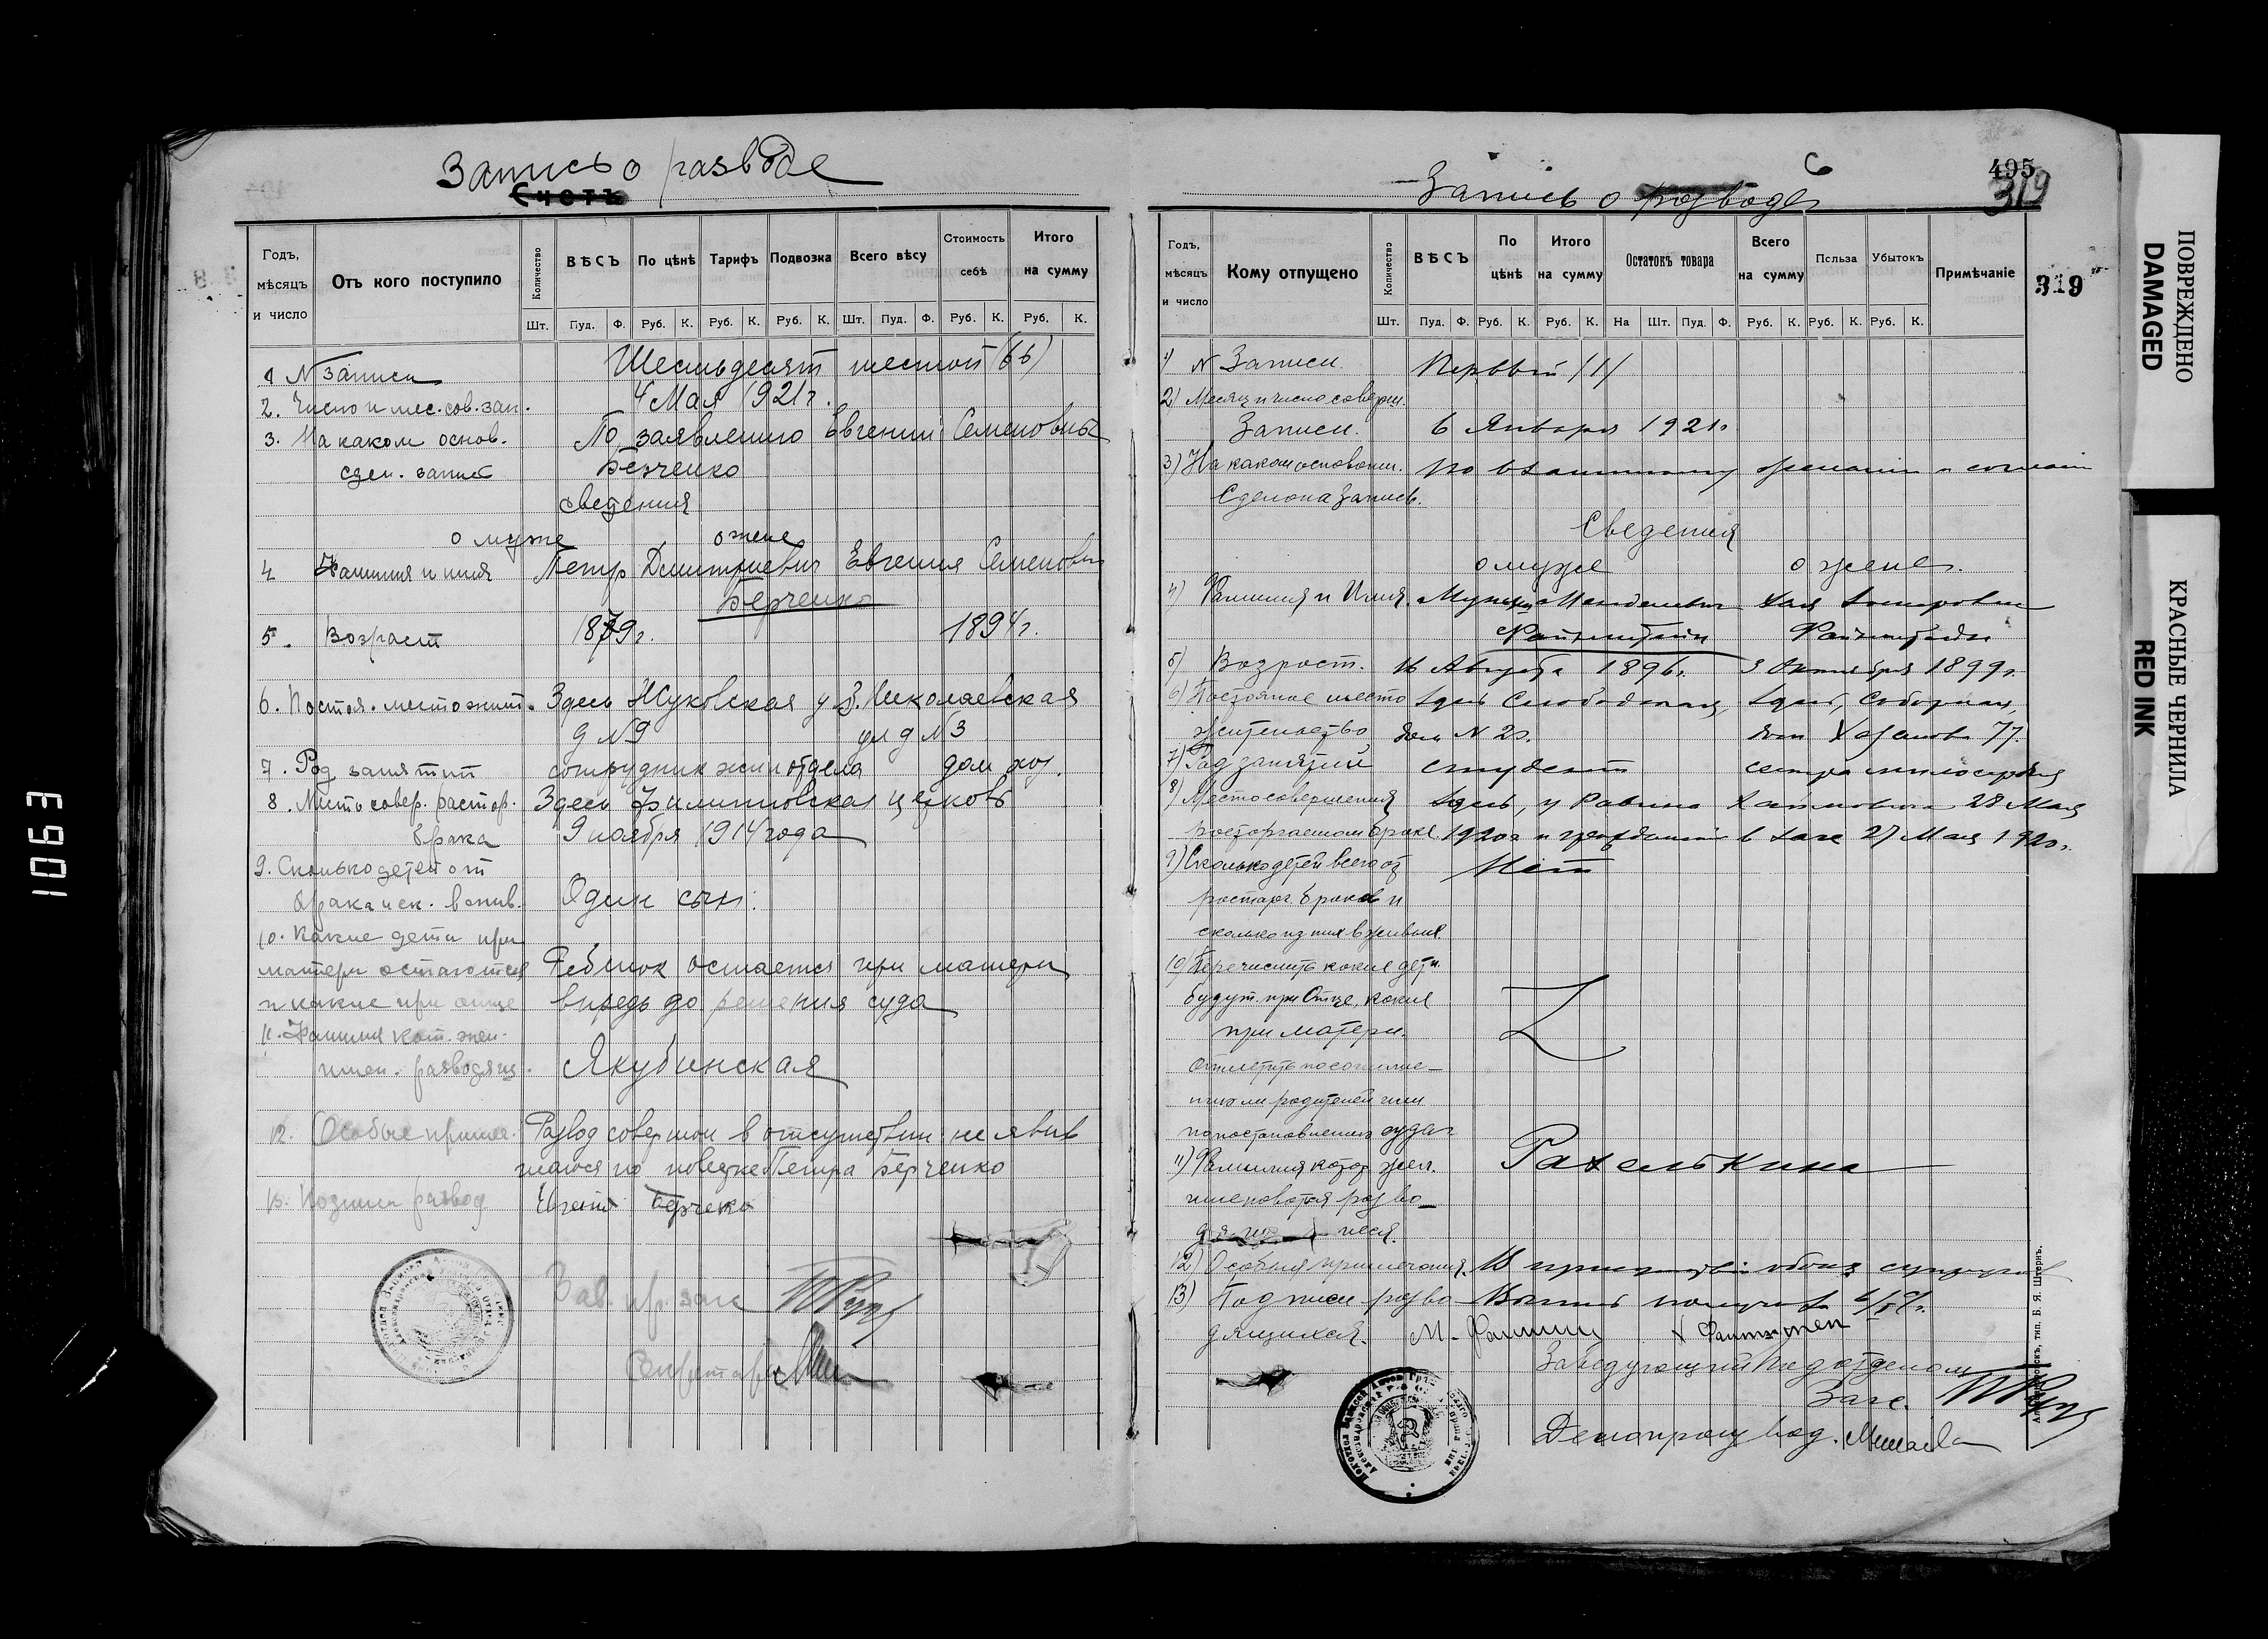 Запись о разводе
Счетъ
Годъ, мѣсяцъ и число
Отъ кого поступило
Количество
ВѢСЪ
По цѣнѣ
Тарифъ
Подвозка
Всего вѣсу
Стоимость себѣ
Итого на сумму
Шт. Пуд. Ф. Руб. К. Руб. К. Руб. К. Шт. Пуд. Ф. Руб. К. Руб. К.
1 N записи Шестьдесят шестой (66)
2. Число и мес. сов. зап. 4 Мая 1921 г.
3. На каком основ. По заявлению Евгении Семеновны
сдел. запись Берченко
сведения
о муже о жене
4 Фамилия и имя Петр Дмитриевич Евгения Семеновна
Берченко
5. Возраст 1879 г. 1894 г.
6. Постоя. местожит. Здесь Жуковская у Здесь Николаевская
д N 9 ул д N 3
7. Род занятий сотрудник жил отдела дом хоз.
8. Место совер. растор. Здесь Филипповская церковь
брака 9 ноября 1914 года
9. Сколько детей от
брака и ск. в жив. Один сын.
10. Какие дети при
матери остаются Ребенок остается при матери
и какие при отце впредь до решения суда
11. Фамилия кот. жел.
имен. разводящ. Якубинская
12. Особые примеч. Развод совершон в отсутствии не явив
шагося по повестке Петра Берченко
13. Подписи развод Евгения Берченко
Зав. пр. загс
Секретарь
Запись о разводе
6
495
319
Годъ, мѣсяцъ и число
Кому отпущено
Количество
ВѢСЪ
По цѣнѣ
Итого на сумму
Остатокъ товара
Всего на сумму
Польза
Убытокъ
Примѣчаніе
319
Шт. Пуд. Ф. Руб. К. Руб. К. На Шт. Пуд. Ф. Руб. К. Руб. К. Руб. К.
1) N Записи Первый /1/
2) Месяц и число соверш.
Записи. 6 Января 1921 г.
3) На каком основании. по взаимному желанию и согласию
Сделана Запись.
Сведения
о муже о жене.
4) Фамилия и Имя. Менделевич Хая
Файнштейн Файнштейн
5) Возраст. 16 Августа 1896 г. 3 Октября 1899 г.
6) Постоянное место Здесь Слободская, Здесь, Соборная,
жительство дом N 20. дом Хазанова 77.
7) Род занятий студент сестра милосердия
8) Место совершения Здесь, у Равина Хаимовича 28 Мая
расторгаемом браке 1920 г и гражданский в Загсе 27 Мая 1920 г.
9) Сколько детей всего от Нет
расторг. браков и
сколько из них в живых.
10) Перечислить какие дети
будут при Отце, какие
при матери.
Отметить по соглаше–
нию ли родителей или
по постановлению суда
11) Фамилия котор. жел. Рахелькина
именоватся разво–
дя щиеся.
12) Особыя примечания. В присутствии обоих супругов
13) Подписи разво
дящихся.
Заведующий Подотделом
Загс.
Делопроизвод.
Александровскъ, тип. Б. Я. Штернъ.
ПОВРЕЖДЕНО
DAMAGED
КРАСНЫЕ ЧЕРНИЛА
RED INK
1063